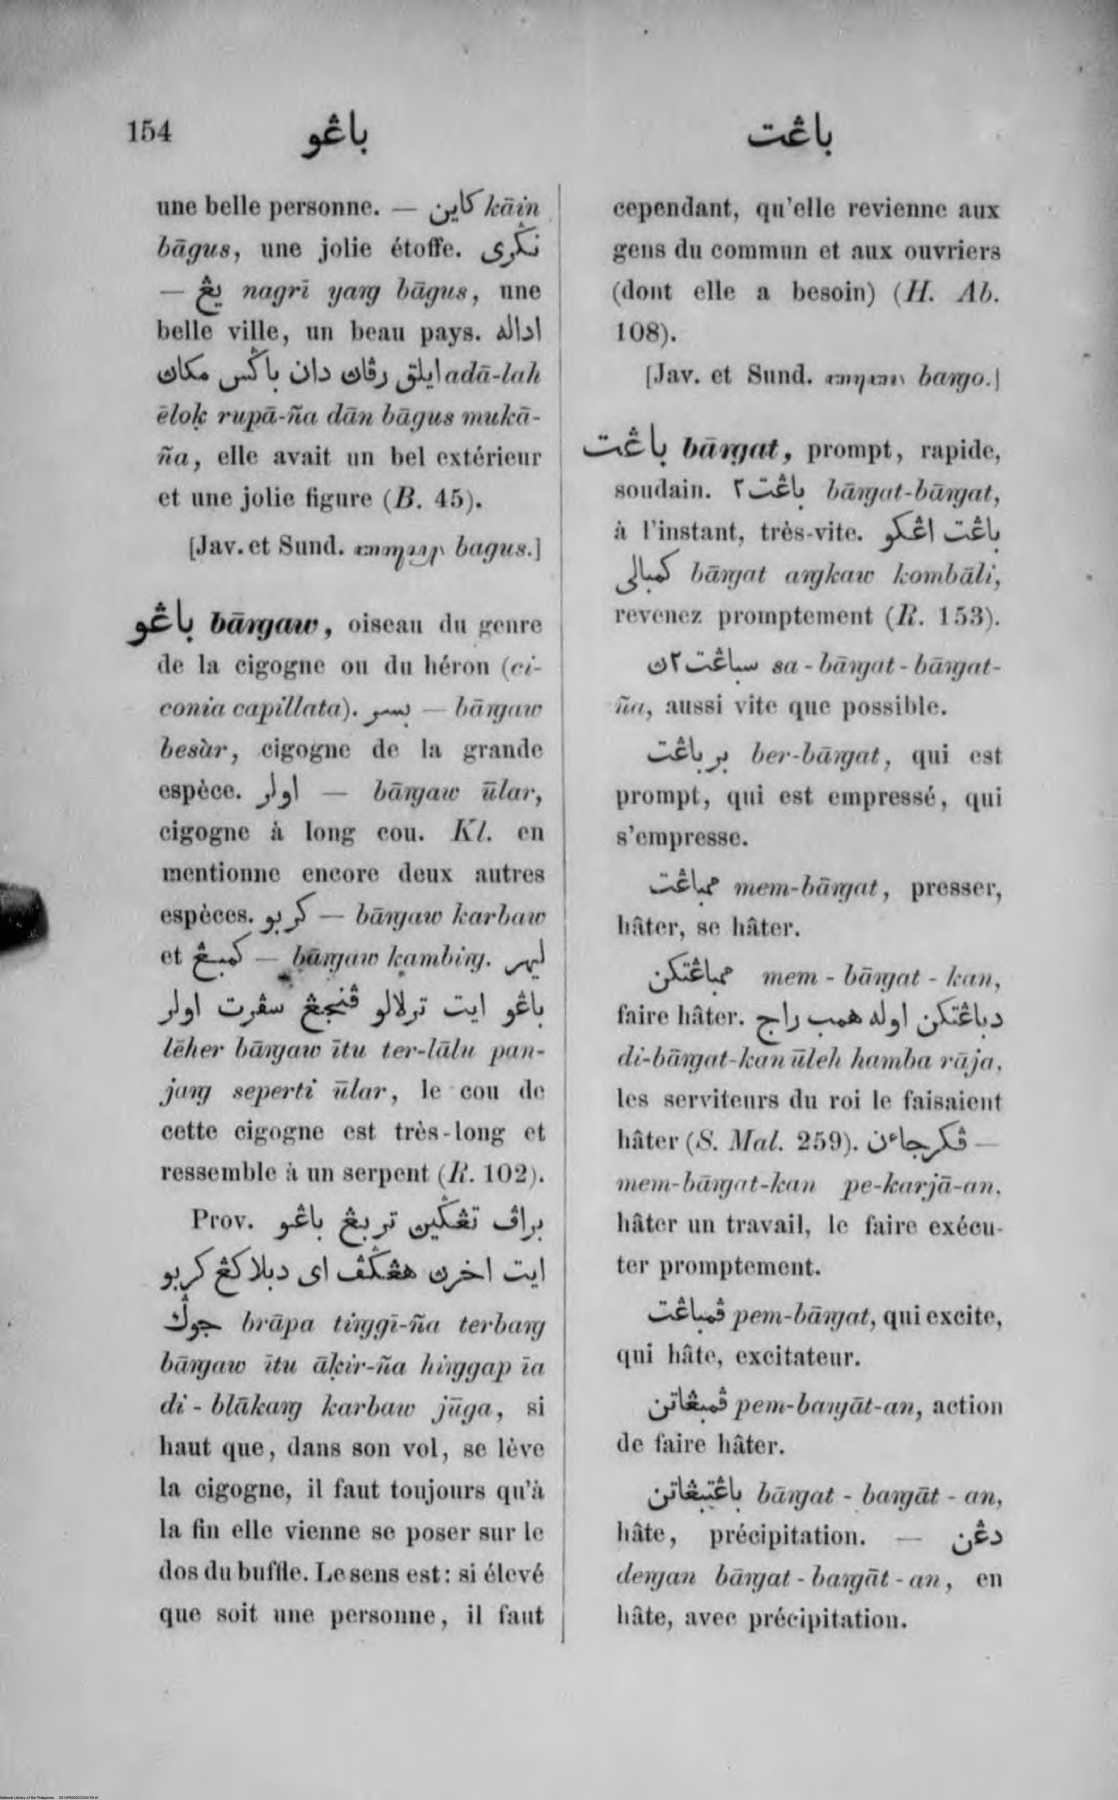 154 باڠو باڠت
une belle personne. — كاين kāin
bāgus, une jolie étoffe. نݢرى
— يڠ nagrī yaŋ bāgus, une
belle ville, un beau pays. اداله
ايلق رڤاڽ دان باݢس مكاڽ adā-lah
ēloḳ rupā-ña dān bāgus mukā-
ña, elle avait un bel extérieur
et une jolie figure (B. 45).
[Jav. et Sund. bagus.]
باڠو bāŋaw, oiseau du genre
de la cigogne ou du héron (ci-
conia capillata). بسر — bāŋaw
besàr, cigogne de la grande
espèce. اولر — bāŋaw ūlar,
cigogne à long cou. Kl. en
mentionne encore deux autres
espèces. كربو — bāŋaw karbaw
et كمبڠ — bāŋaw kambiŋ. ليهر
باڠو ايت ترلالو ڤنجڠ سڤرت اولر
lēher bāŋaw ītu ter-lālu pan-
jaŋ seperti ūlar, le cou de
cette cigogne est très-long et
ressemble à un serpent (R. 102).
Prov. براڤ تڠݢين تربڠ باڠو
ايت اخرن هڠݢڤ اى دبلاكڠ كربو
جوݢ brāpa tiŋgī-ña terbaŋ
bāŋaw ītu āḳir-ña hiŋgap īa
di-blākaŋ karbaw jūga, si
haut que, dans son vol, se lève
la cigogne, il faut toujours qu'à
la fin elle vienne se poser sur le
dos du buffle. Le sens est: si élevé
que soit une personne, il faut
cependant, qu'elle revienne aux
gens du commun et aux ouvriers
(dont elle a besoin) (H. Ab.
108).
[Jav. et Sund. baŋo.]
باڠت bāŋat, prompt, rapide,
soudain. باڠت٢ bāŋat-bāŋat,
à l'instant, très-vite. باڠت اڠكو
كمبالى bāŋat aŋkaw kombāli,
revenez promptement (R. 153).
سباڠت٢ن sa-bāŋat-bāŋat-
ña, aussi vite que possible.
برباڠت ber-bāŋat, qui est
prompt, qui est empressé, qui
s'empresse.
ممباڠت mem-bāŋat, presser,
hâter, se hâter.
ممباڠتكن mem-bāŋat-kan,
faire hâter. دباڠتكن اوله همب راج
di-bāŋat-kan ūleh hamba rāja,
les serviteurs du roi le faisaient
hâter (S. Mal. 259). ڤكرجاءن —
mem-bāŋat-kan pe-karjā-an,
hâter un travail, le faire exécu-
ter promptement.
ڤمباڠت pem-bāŋat, qui excite,
qui hâte, excitateur.
ڤمبڠاتن pem-baŋāt-an, action
de faire hâter.
باڠتبڠاتن bāŋat-baŋāt-an,
hâte, précipitation. — دڠن
deŋan bāŋat-baŋāt-an, en
hâte, avec précipitation.